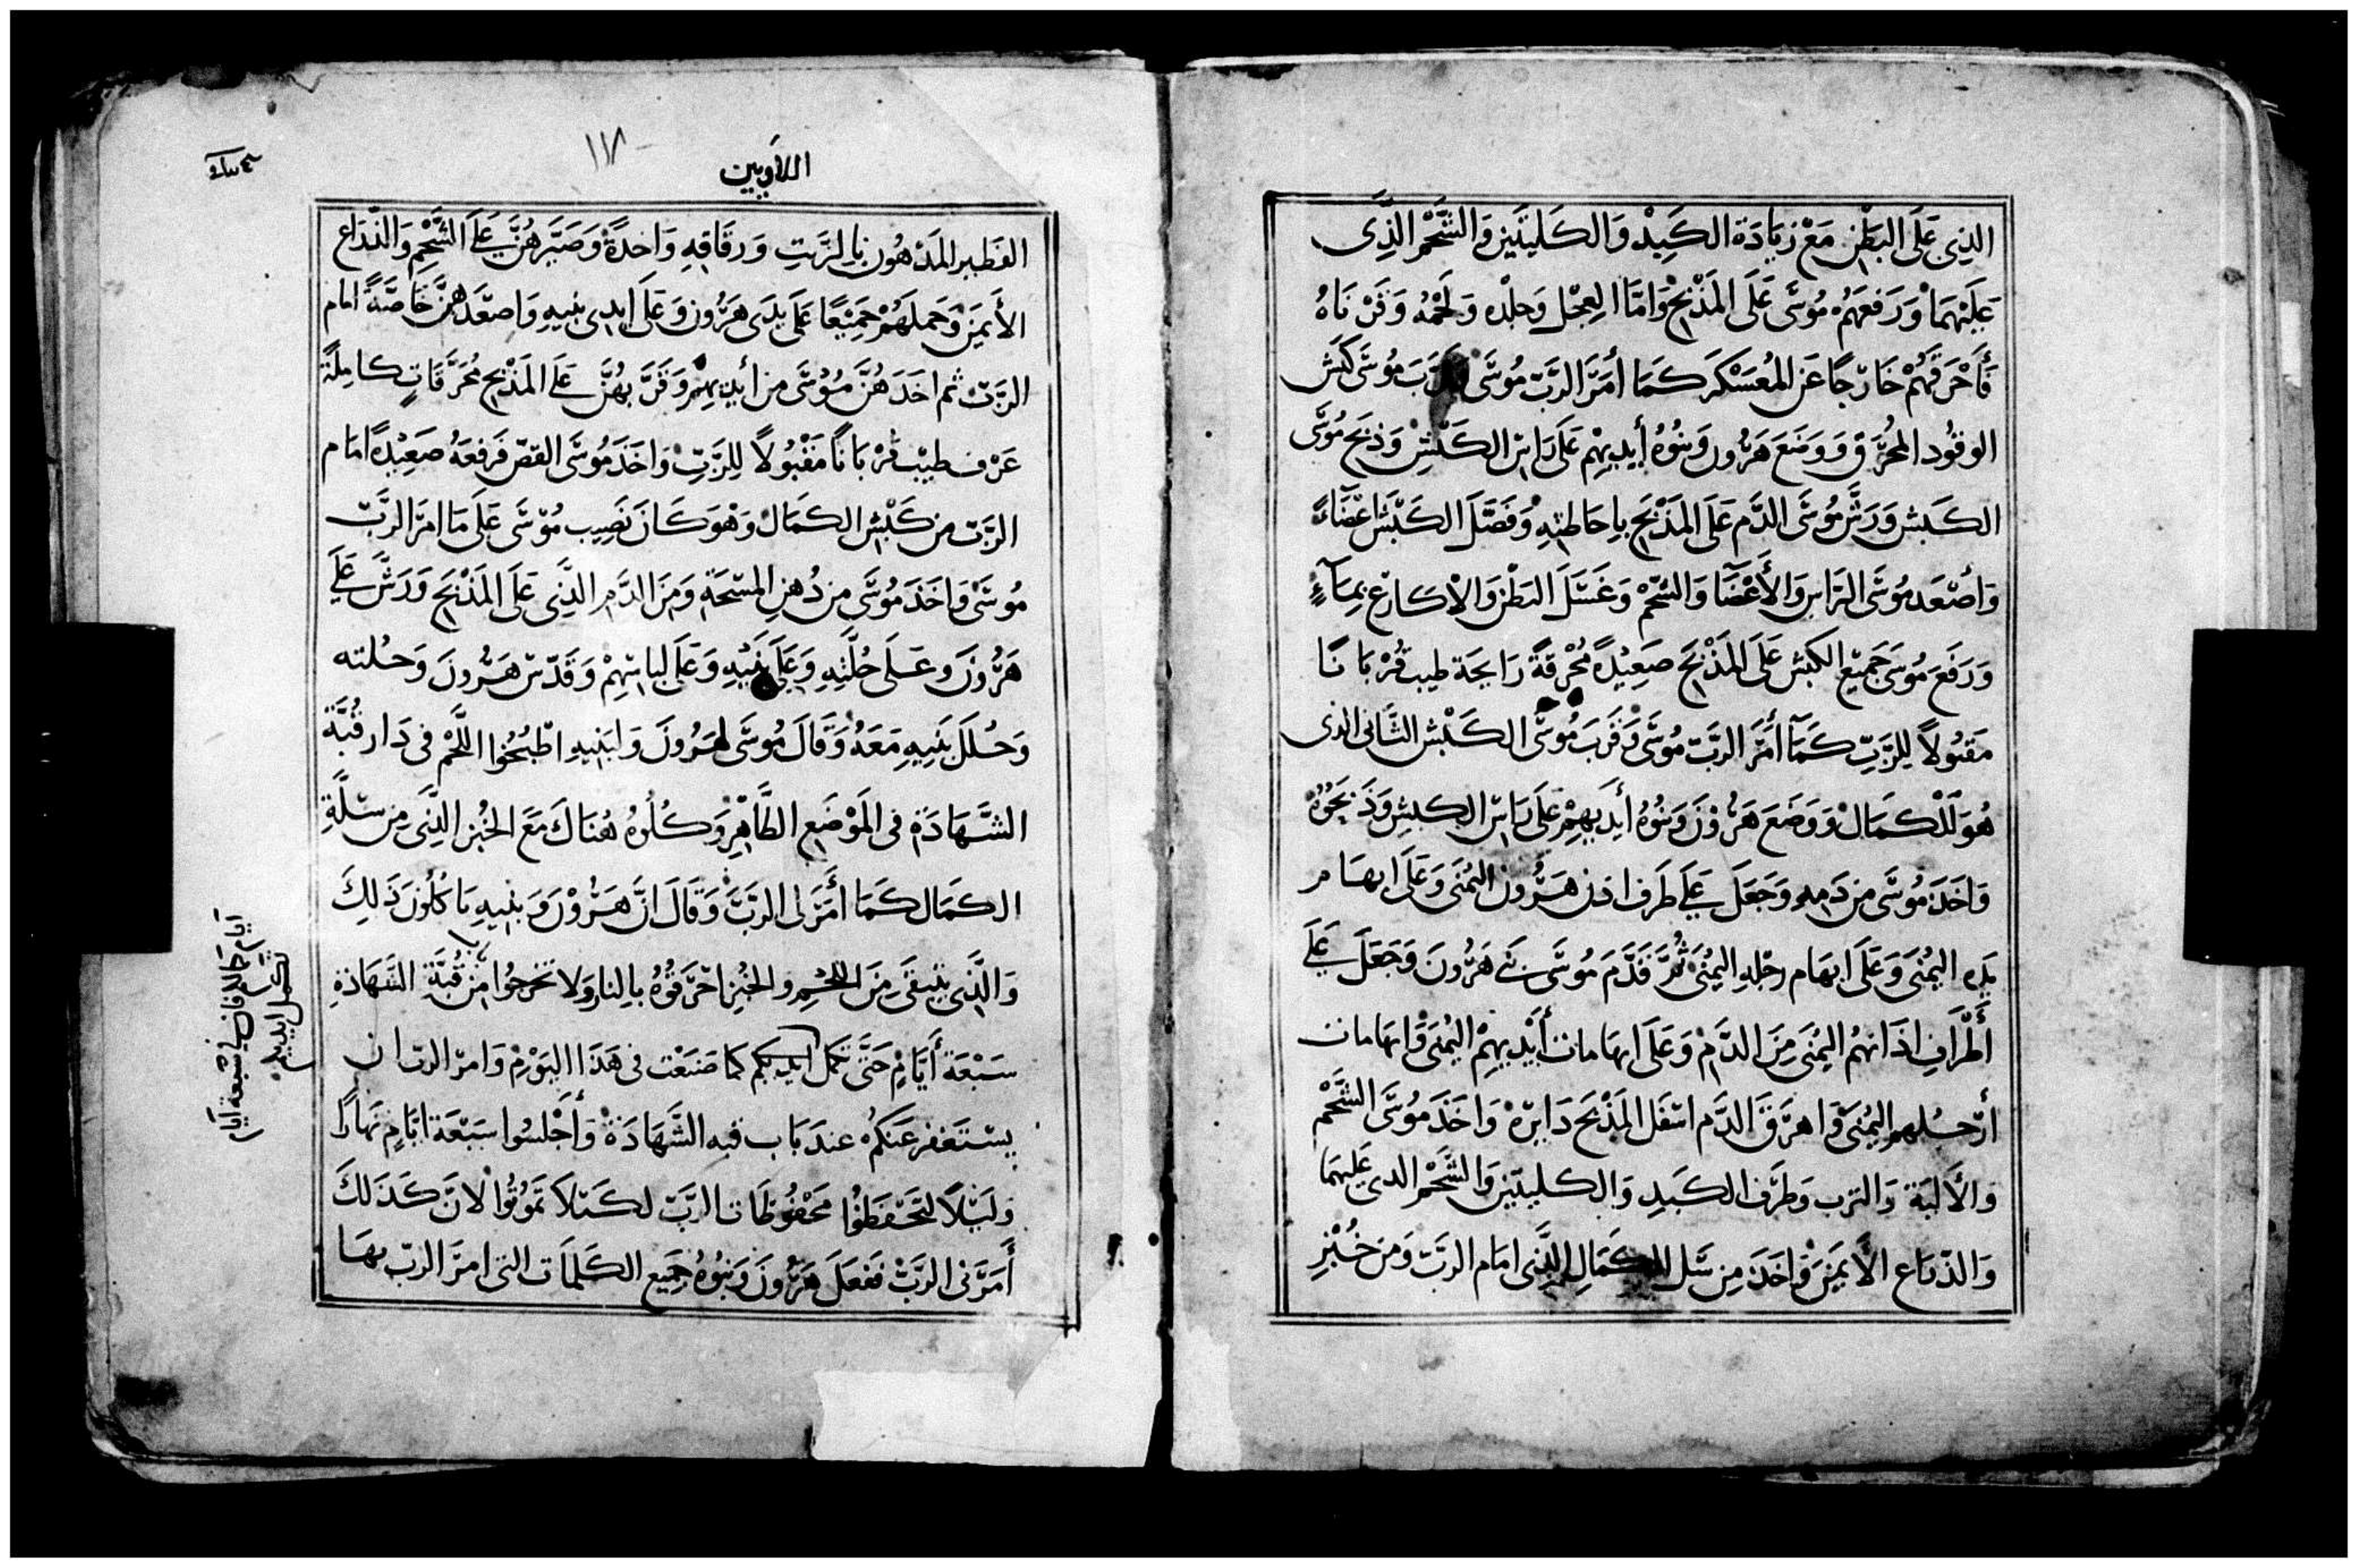 الذِى عَلَى البَطْنِ مَعْ زِيَادَة الكَبِدْ وَالكَليتَين وَالشَّحْم الذَّى
عَلَيْهمَا وَرَفعَهُم مُوسَى عَلَى المَذْبَح وَامَّا العِجْل وَجلْده وَلَحْمُه وَفَرْنَاهُ
فَأَحْرَقَهُمْ خَارِجًا عَن المُعَسْكَر كَمَا أمَرَ الرَبّ مُوسَى وَقَرَبَ مُوسَى كَبْش
الوقُود المُحْرَق وَوَضَعَ هَرُون وَبنُوهُ أيديهِم عَلَى رَاس الكَبْشِ وَذبَح مُوسَى
الكَبش وَرَشّ مُوسَى الدَّم عَلَى المَذْبَح باحَاطتِهِ وَفَصَّلَ الكَبْشَ اعْضَاءً
وَأصْعَد مُوسَى الرَاس وَالأَعْضَا وَالشَحْم وَغَسَّلَ البَطْن وَالاكارع بمَآءٍ
وَرَفَعَ مُوسَى جَميْع الكَبْش عَلَى المَذْبَح صَعِيْدةً مُحْرقَةً رَايحَة طيب قُرْبَانًا
مَقبُولاً لِلرَّبِّ كَمَآ أَمَرَ الرَبّ مُوسَى وَقَرَبَ مُوسَى الكَبْش الثَّانى الذى
هُوَ للْكمَالْ وَوَضَعَ هَرُونَ وَبنُوهُ أيدِيهِمْ عَلَى رَاس الكبشِ وَذَبحُوهُ
وَاخَذَ مُوسَى من دَمِهِ وَجَعَلَ عَلَى طَرف اذن هَرُون اليُمْنَى وَعَلَى ابهام
يَدِه اليُمْنَى وَعَلَى ابهَام رجْلِهِ اليُمْنَى ثُمَّ قَدَّمَ مُوسَى بَنى هَرُونَ وَجَعَلَ عَلَى
أَطْرَافِ اذَانهُم اليُمْنَى مِنَ الدَّمْ وَعَلَى ابهَامات أَيْدِيهِمْ اليُمْنَى وَابهَامات
أرْجُلهم اليُمْنَى وَاهرَقَ الدَّم اسْفَل المَذْبَح دَايرَهْ وَاخَذَ مُوسَى الشَحْم
والأَليَة وَالترب وَطرَف الكَبَدِ وَالكليتين وَالشَحْم الذى عَليهمَا
وَالذّراع الأَيمَنَ وَاخَذَ مِن سَل الكَمَالِ الَّذِى امَام الرَبّ وَمن خُبْزِ
٤ سلوك
اللاويين
١١٨
الفَطير المَدْهُون بالزَيتِ وَرقَاقهِ وَاحدةً وَصَيّرهُنَّ عَلَى الشَّحْمِ وَالذّرَاع
الأَيمَن وَحَملَهُمْ جَميْعًا عَلَى يدَى هَرُون وَعَلَى ايدِى بنِيهِ وَاصعَدَهنَّ خَاصَّةً امَام
الرَبّ ثم اخَذَهُنَّ مُوسَى من أيدِيهِم وَقَرَّبهُنَّ عَلَى المَذْبَح مُحَرَّقَاتٍ كامِلَةً
عَرْف طِيْب قُرْبَانًا مَقْبُولاً لِلرَّبِّ وَاخَذَ مُوسَى القصّ فَرفَعَهُ صَعِيْدةً امَام
الرَبّ من كَبْش الكمَالْ وَهْوَ كَانَ نَصِيب مُوْسَى عَلَى مَا امَرَ الرَبّ
مُوسَى وَاخَذَ مُوسَى من دُهنِ المسْحَة وَمنَ الدَّمِ الذَّى عَلَى المَذْبَح وَرَشَّ عَلَى
هَرُونَ وعَلَى حُلَّتِهِ وَعَلَى بَنِيْهِ وَعَلَى لباسهِمْ وَقَدّسَ هَرُونَ وَحُلته
وَحُلَلَ بَنِيهِ مَعَهُ وَقَالَ مُوسَى لهَرُونَ وَلبَنيهِ اطْبُخُوا اللَّحْم فى دَار قُبَّة
الشَّهَادَة فى المَوْضَع الطَّاهِرِ وَكُلُوهُ هُنَاكَ مَعَ الخُبْز الَّذِى مِن سَلَّةِ
الكمَال كَمَا أَمَرَنى الرَبّ وَقَالَ انَّ هَرُوْنَ وَبنيهِ يَاكُلُونَ ذَلِكَ
وَالَّذِى يَتبقَى مِنَ اللحْم والخُبْز احْرَقُوْهُ بالنارِ وَلا تخرجُوا منْ قُبَّةِ الشَهَادَة
سَبْعَة أَيَّامٍ حَتَّى تكمل ايديكم كما صَنَعْت فى هَذَا اليَوْمْ وَامرَ الربّ ان
يسْتَغفر عَنكمُ عندَ بَاب قبه الشَهَادَة وَأَجْلسُوا سَبْعَة ايّام نهَارًا
وَلَيْلاً لتَحْفظُوا مَحْفُوظَات الرَبّ لكَيْلا تَمُوتُوا لانَ كَذَلكَ
أَمَرَنى الرَبّ فَفعَلَ هَرُونَ وَبنُوهُ جَميع الكَلمَات التى امَرَ الربّ بهَا